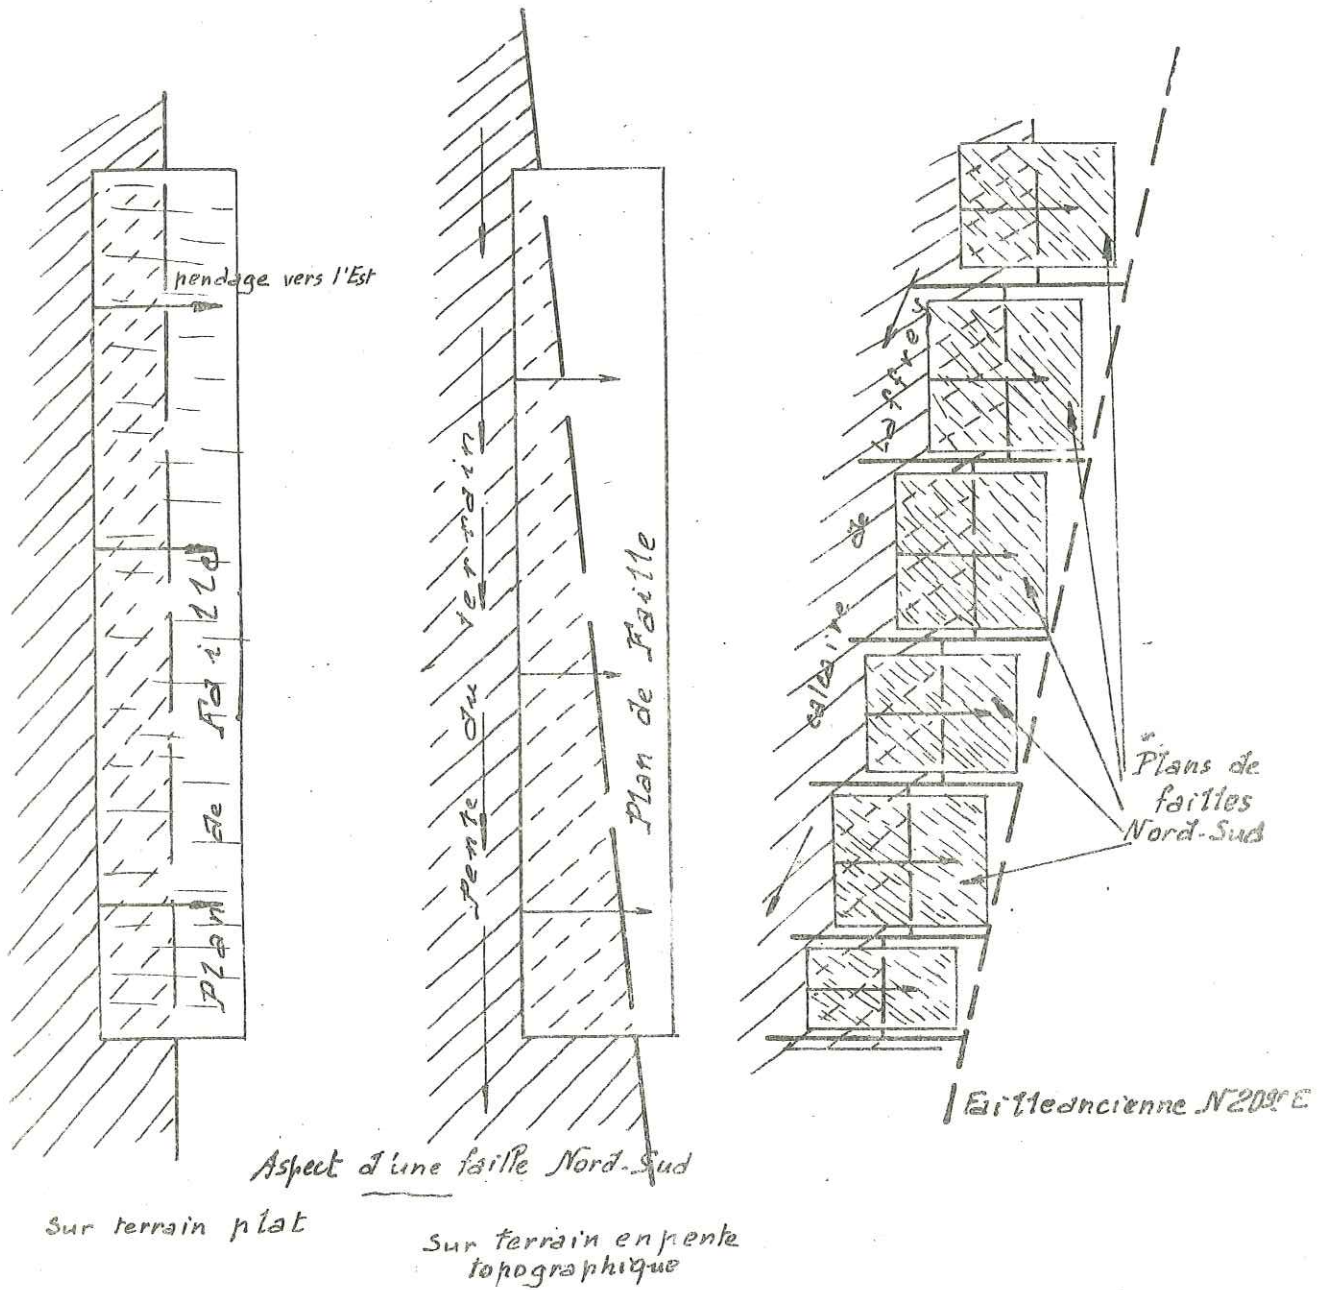 pendage vers l'Est
Plan de Faille
Pente du terrain
Plan de Faille
calcaire de Laffrey
Plans de
failles
Nord-Sud
Faille ancienne N 20gr E
Aspect d'une faille Nord-Sud
Sur terrain plat
Sur terrain en pente
topographique